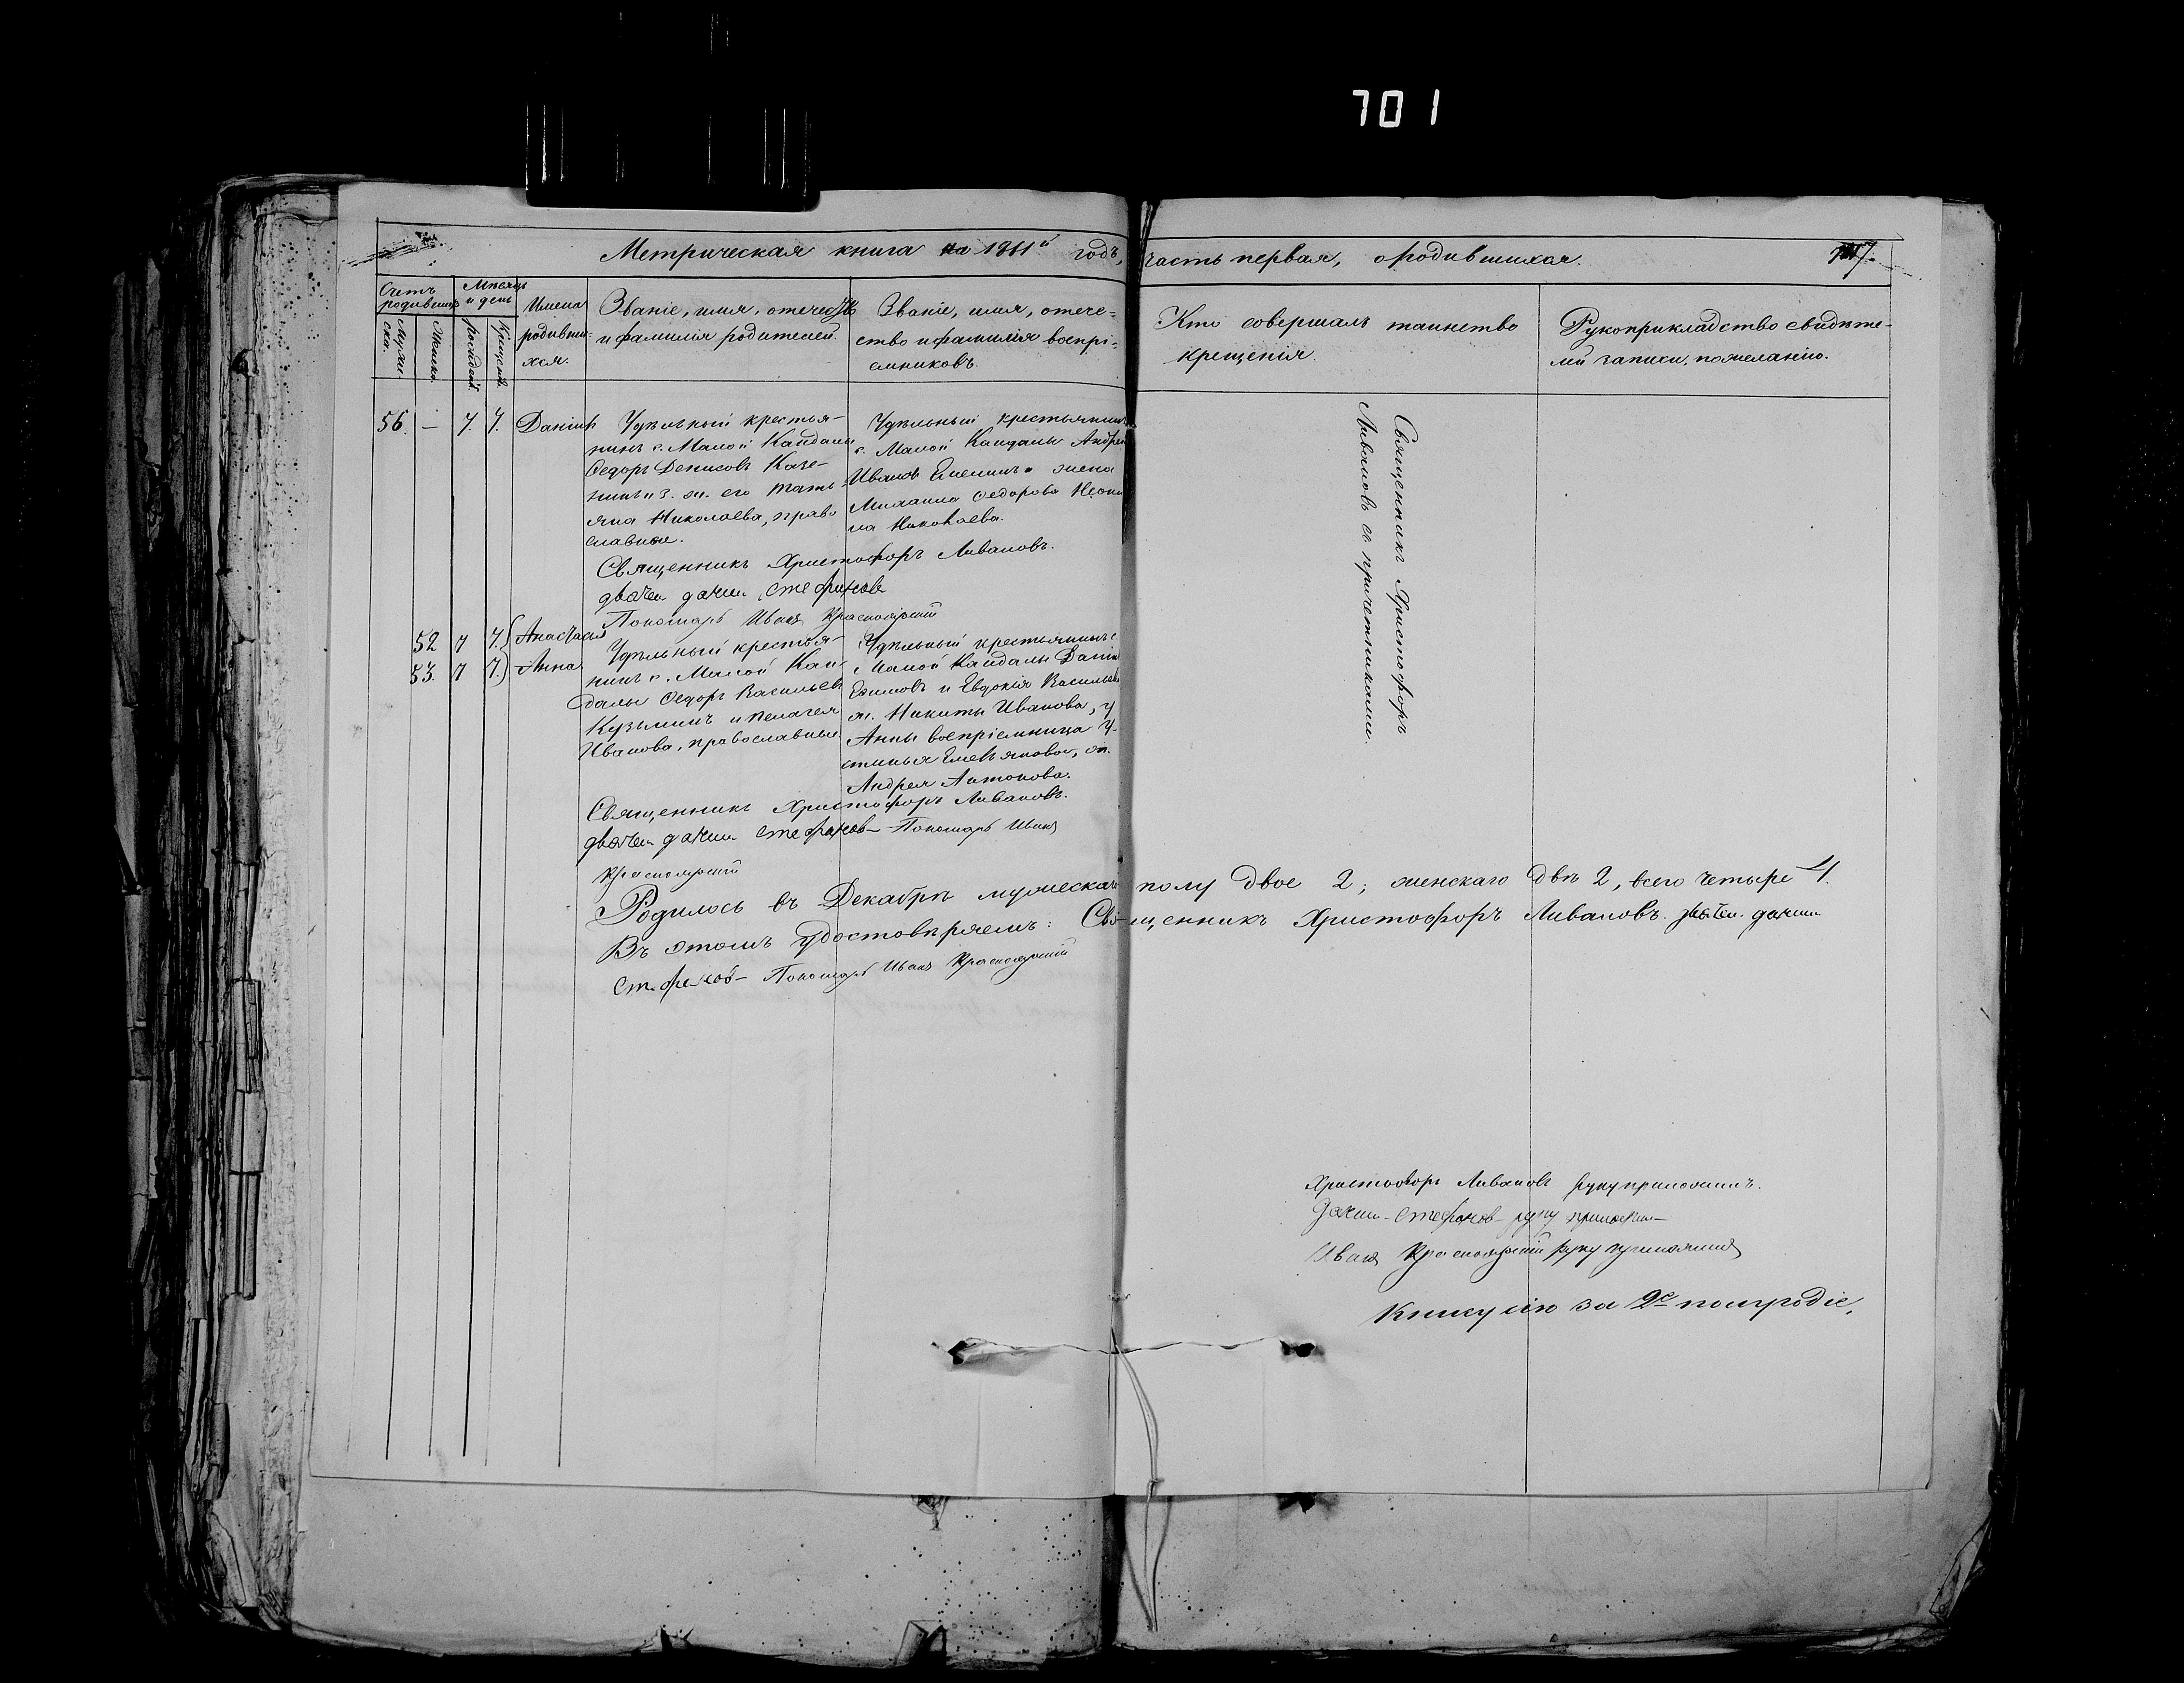 701
Метрическая книга на 1861й годъ, часть первая, о родившихся. 
Счетъ родившихся
Мѣсяцъ и день
Имена родивши-
хся.
Званіе, имя, отечество
и фамилія родителей.
Званіе, имя, отече-
ство и фамилія воспрі-
емниковъ.
Кто совершалъ таинство
крещенія.
Рукоприкладство свидѣте-
лей записи, по желанію.
56. — 7. 7. Даніилъ
Удѣльный крестья-
нинъ с. Малой Кандалы
Ѳедоръ Денисовъ
и з. ж. его Тать-
яна Николаева, право
славные.
Удѣльный крестьянинъ
с. Малой Кандалы Андрей
Ивановъ Емелинъ жена
Михаила Ѳедорова
Николаева.
Священникъ Христофоръ Ливановъ.
Стефановъ
Пономарь Иванъ Красноярскій
52 7 7. Анастасія
53. 7 7. Анна
Удѣльный крестья-
нинъ с. Малой Кан-
далы Ѳедоръ Васильевъ
Кузьминъ и Пелагея
Иванова, православные
Удѣльный крестьянинъ с.
Малой Кандалы Даніилъ
Ефимовъ и Евдокія Васильева
ж. Никиты Иванова, у
Анны воспріемница У-
стинья Емельянова, ж.
Андрея Антонова.
Священникъ Христофоръ Ливановъ.
Стефановъ Пономарь Иванъ
Красноярскій
Священникъ Христофоръ
Ливановъ съ причетниками.
Родилось въ Декабрѣ мужескаго полу двое 2; женскаго двѣ 2, всего четыре 4.
Въ этомъ удостовѣряемъ: Священникъ Христофоръ Ливановъ.
Стефановъ Пономарь Иванъ Красноярскій
Христофоръ Ливановъ руку приложилъ.
Стефановъ руку приложилъ
Иванъ Красноярскій руку приложилъ
Книгу сію за 2е полугодіе,